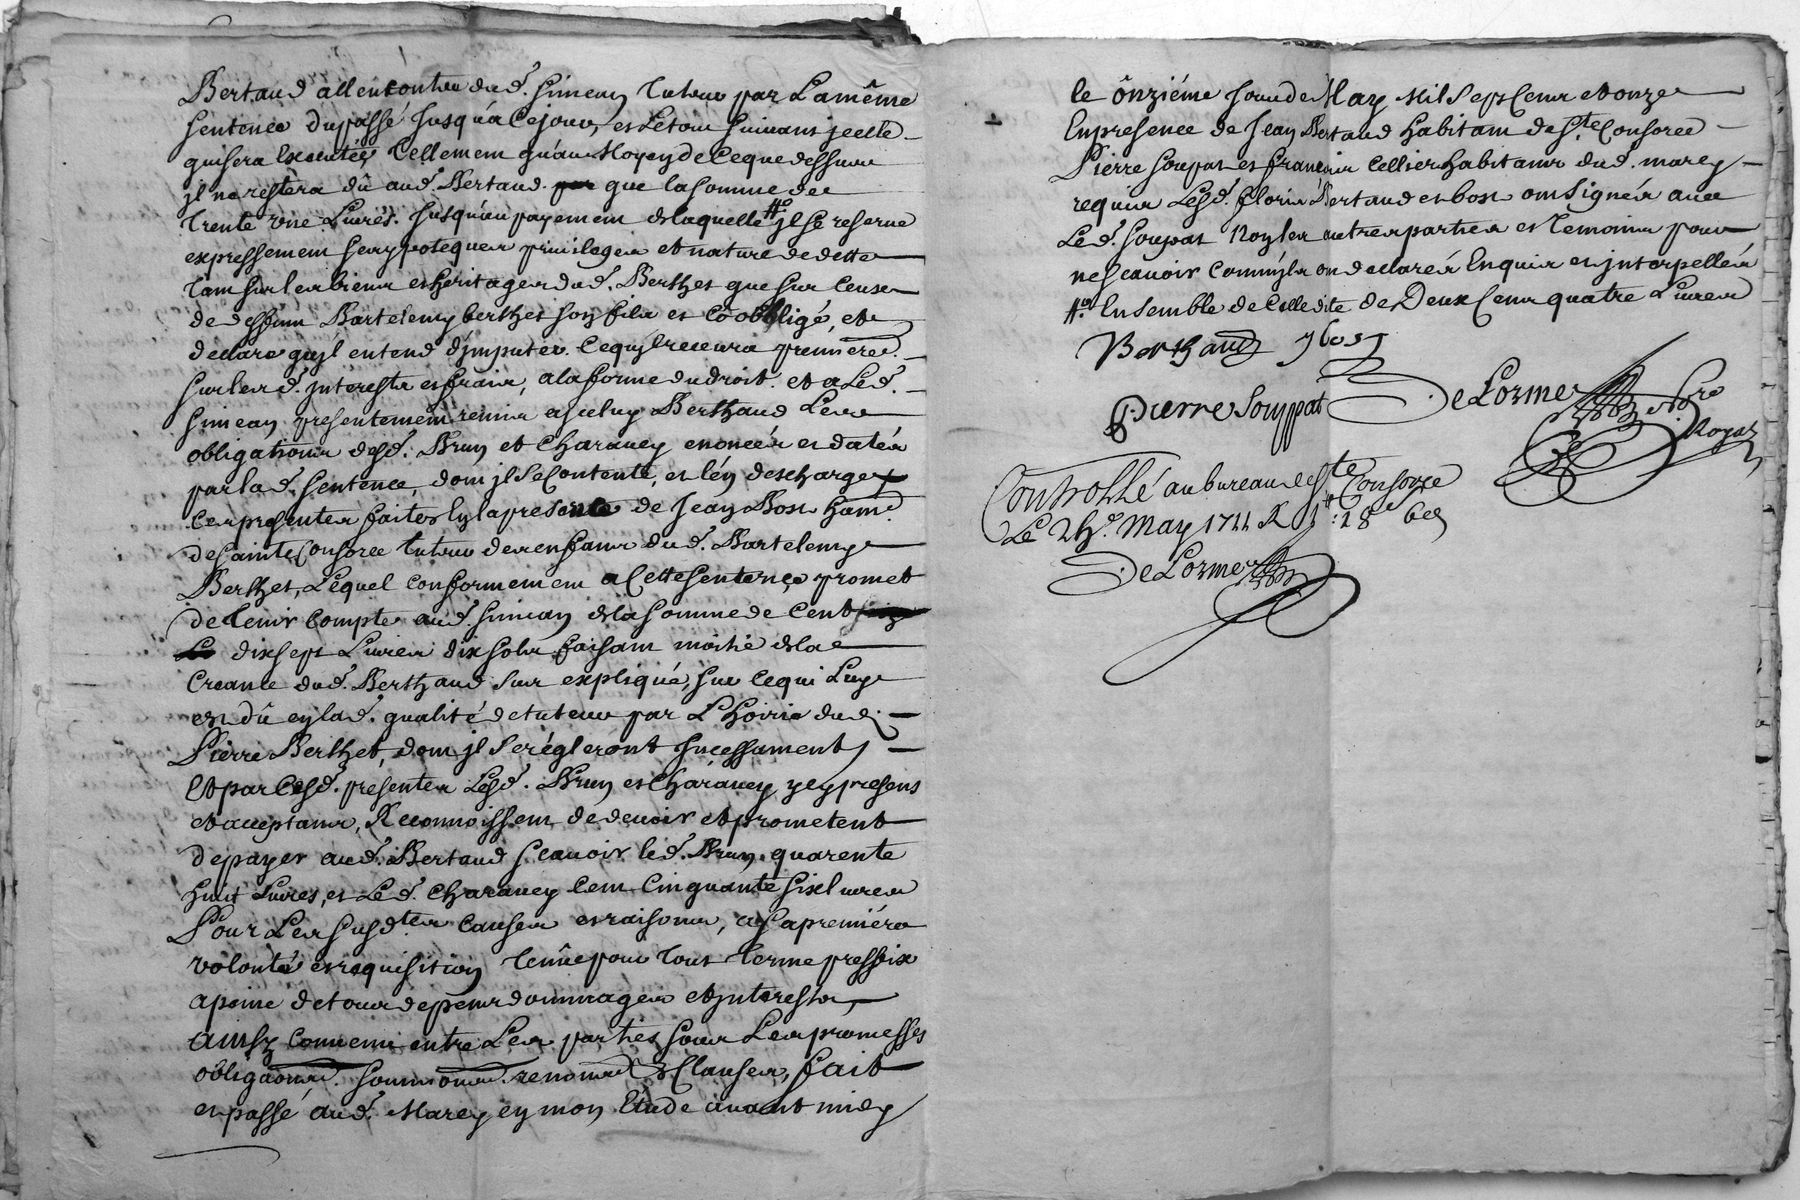 Bertaud allencontre dud. Simean tuteur par la même
sentence du passé jusqu'à ce jour, et le tout suivant jcelle
qui sera executée tellement qu'au moyen de ce que dessus
jl ne restera dû aud. Bertaud que la somme de
trente une Livres. Jusqu'au payement de laquelle # jl se reserve
expressement ses ypoteques privileges et nature de dette
tant sur les biens et heritages dud. Berthet que sur ceux
de deffunt Bartelemy berthet son fils et cô obbligé, et
declare qu'jl entend d'jmputer ce qu'jl recevra premierem.
sur lesd. jnterests et fraix, a la forme du droit. et a led.
Simean presentement remis a jceluy Berthaud les
obligations desd. Brun et Charavey enoncées et datées
par lad. sentence, dont jl se contente, et l'en descharge
Ces presentes faites en la presence de Jean Bost hant.
de Sainte Consorce tuteur des enfants dud. Bartelemy
Berthet, Lequel conformement a cette sentence promet
de tenir compte aud. Simean de la somme de cent
dix sept Livres dix sols faisant moitié de la
creance dud. Berthaud sus expliqué, sur ce qui luy
est dû en lad. qualité de tuteur par L'hoirie dud.
Pierre Berthet, dont jl se régleront jncessament,
Et par cesd. presentes lesd. Brun et Charavey ycy presens
et acceptans, Reconnoissent de devoir et prometent
de payer aud. Bertaud scavoir led. Brun quarente
huit Livres, et Led. Charavey cent cinquante six livres
Pour Les susdtes causes et raisons, a sa première
volonté et requisition tenûe pour tout terme preffix
a peine de tous depens dommages et jnterests,
ainsy convenu entre Les parties sous Les promesses
obligaons. soumons. renonons & Clauses, fait
et passé aud. Marcy en mon Etude avant midy
le ônziéme jour de May Mil Sept Cent et onze
En presence de Jean Bertaud habitant de Ste Consorce
Pierre Soupat et françois Cellier habitans dud. marcy
requis Lesd. Bertaud et bost ont Signés avec
Led. Soupat Non les autres parties et temoins pour
ne Scavoir comm'jls ont declarés Enquis et jnterpellés
# Ensemble de celle dite de Deux Cent quatre Livres
Berthaud jbost
pierre Souppat DeLorme Nore Royal
Controllé au bureau de Ste Consorce
Le 24e. May 1711 R
DeLorme